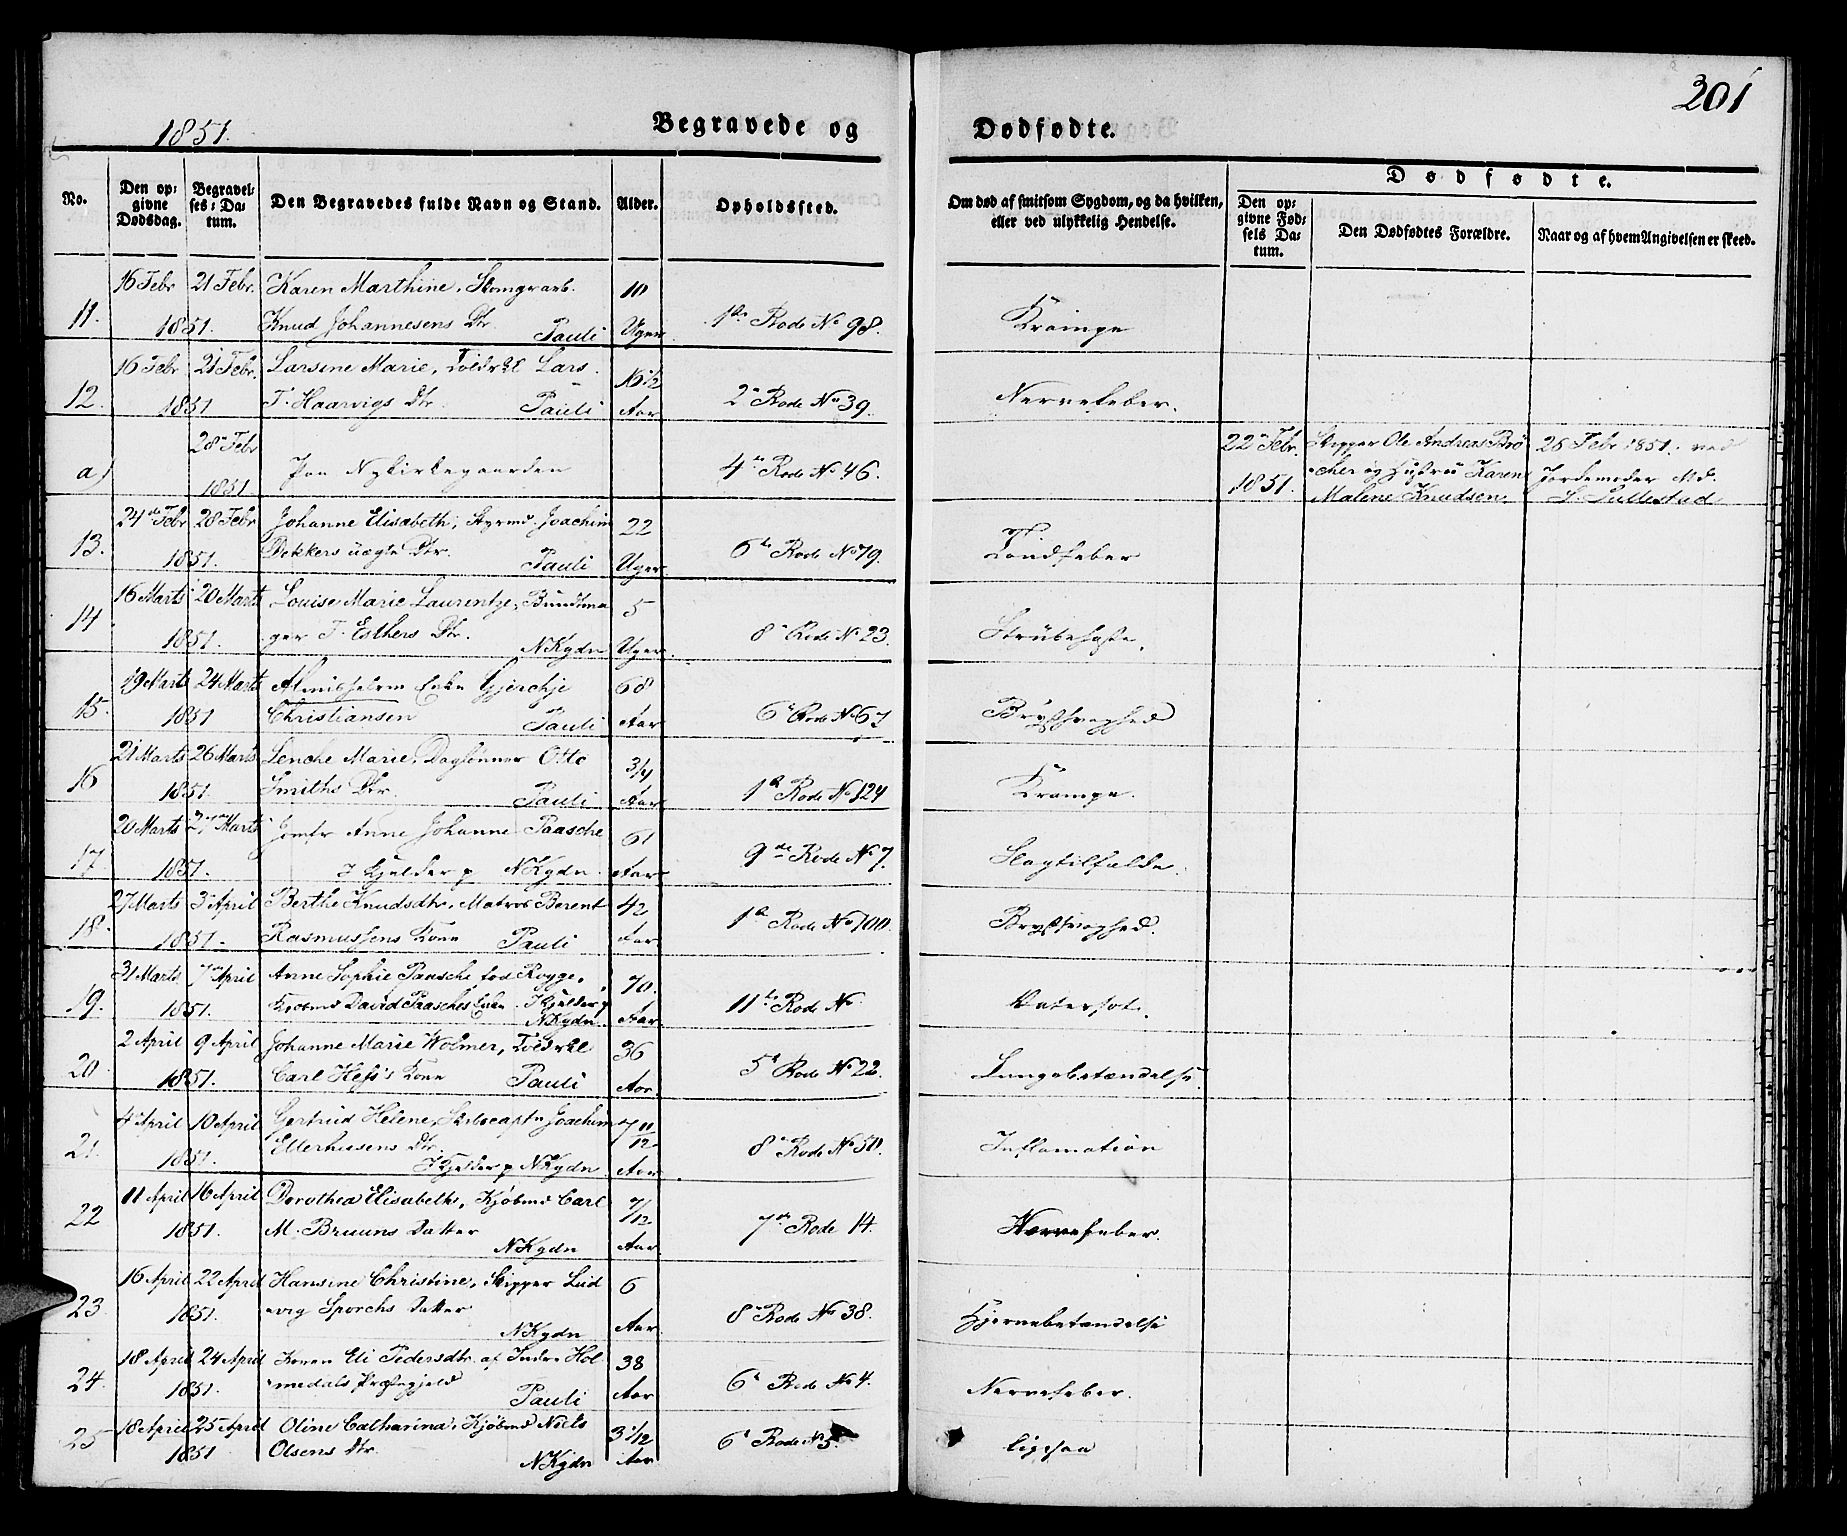 201
1851.
Begravede og Dødfødte.
No.
Den op-
givne
Dødsdag.
Begravel-
ses-Da-
tum.
Den Begravedes fulde Navn og Stand.
Alder.
Opholdssted.
Om død af smitsom Sygdom, og da hvilken,
eller ved ulykkelig Hendelse.
Dødfødte.
Den op-
givne Fød-
sels Da-
tum.
Den Dødfødtes Forældre.
Naar og af hvem Angivelsen er skeed.
16 Febr 21 Febr. Karen Marthine, 10
11. 1851. Knud Johannesens Dtr. Pauli Uger 1ste Rode No 98. Krampe
16 Febr 21 Febr. Larsine Marie, Lars
12. 1851 T. Haarvigs Dtr. Pauli Aar 2 Rode No 39. Nervefeber.
28 Febr 22 Febr. Skipper Ole Andreas Brö 25 Febr 1851. ved
a) 1851 Paa Nykirkegaarden 4de Rode No 46. 1851. cker og Hustru Karen Jordemoder Md.
Malene Knudsen S. Lillestad
24de Febr 28 Febr Johanne Elisabeth, Styrmd. Joachim 22
13. 1851. Dekkers uægte Dtr. Pauli Uger 6te Rode No 79. Tandfeber
16 Marts 20 Marts Louise Marie Laurentze, Bundtma 5
14 1851. ger T. Esthers Dtr. NKgdn Uger. 8 Rode No 23. Strübehoste.
19 Marts 24 Marts Enke 68
15. 1851 Christiansen Pauli Aar 6 Rode No 67 Brÿstsvaghed
21 Marts 26 Marts Lenche Marie, Daglønner Otto 3/4
16 1851. Smiths Dtr. Pauli Aar 1ste Rode No 124 Krampe.
20 Marts 27 Marts Jomfr Anne Johanne Paasche 61
17 1851. I Kjelder p NKgdn. Aar 9de Rode No 7. Slagtilfælde.
27 Marts 3 April Berthe Knudsdtr, Matros Berent 42
18. 1851. Rasmussens Kone Pauli Aar 1ste Rode No 100. Brystsvaghed.
31 Marts 7 April Anne Sophie Paasche fød Rogge, 70.
19. 1851. Kjøbmd David Paasches Enke. I Kjelder p Aar 11te Rode No Vatersot.
NKgdn.
2 April 9 April Johanne Marie Wolmer, 36
20 1851. Carl Hess's Kone Pauli Aar 5te Rode No 22. Lungebetændelse.
4 April 10 April Gertrud Helene, Skibscaptn Joachim 7 11/12
21. 1851. Ellerhusens Dtr. I Kjelder p NKgdn. Aar 8 Rode No 50. Inflamation
11 April 16 April Dorothea Elisabeth, Kjøbmd Carl 7/12
22 1851. M. Bruuns Datter NKgdn Aar 7de Rode 14. Nervefeber.
16 April 22 April Hansine Christine, Skipper Lud 6
23. 1851. vig Sporchs Datter NKgdn Aar 8 Rode No 38. Hjernebetændelse
18 April 24 April Karen Eli Pedersdtr. af Indre Hol 38
24. 1851. medals Præstegjeld Pauli Aar 6te Rode No 4. Nervefeber.
18 April 25 April Oline Catharina, Kjøbmd Niels 3 1/12
25 1851 Olsens Dtr. NKgdn Aar 6te Rode No 5. ligesaa